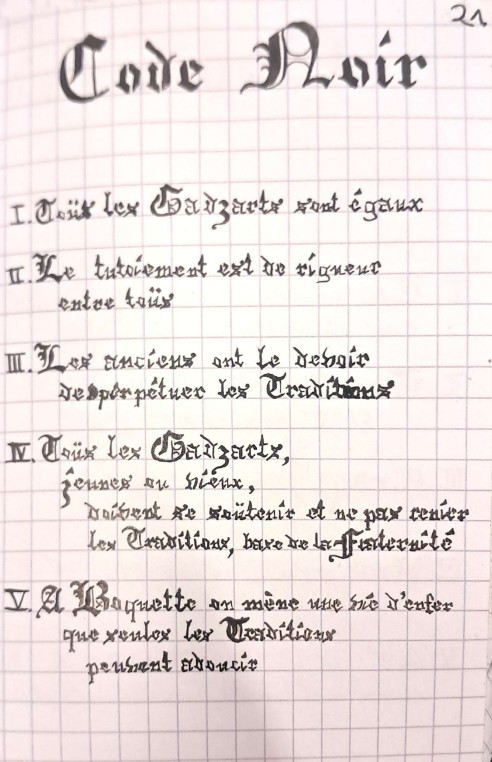 21
Code Noir
I. Toüs les Gadzarts sont égaux
II. Le tutoiement est de rigueur
entre toüs
III. Les anciens ont le devoir
de perpétuer les Traditions
IV. Toüs les Gadzarts,
jeunes ou vieux,
doivent se soütenir et ne pas renier
les Traditions, base de la Fraternité
V. A Boquette on mène une vie d'enfer
que seules les Traditions
peuvent adoucir